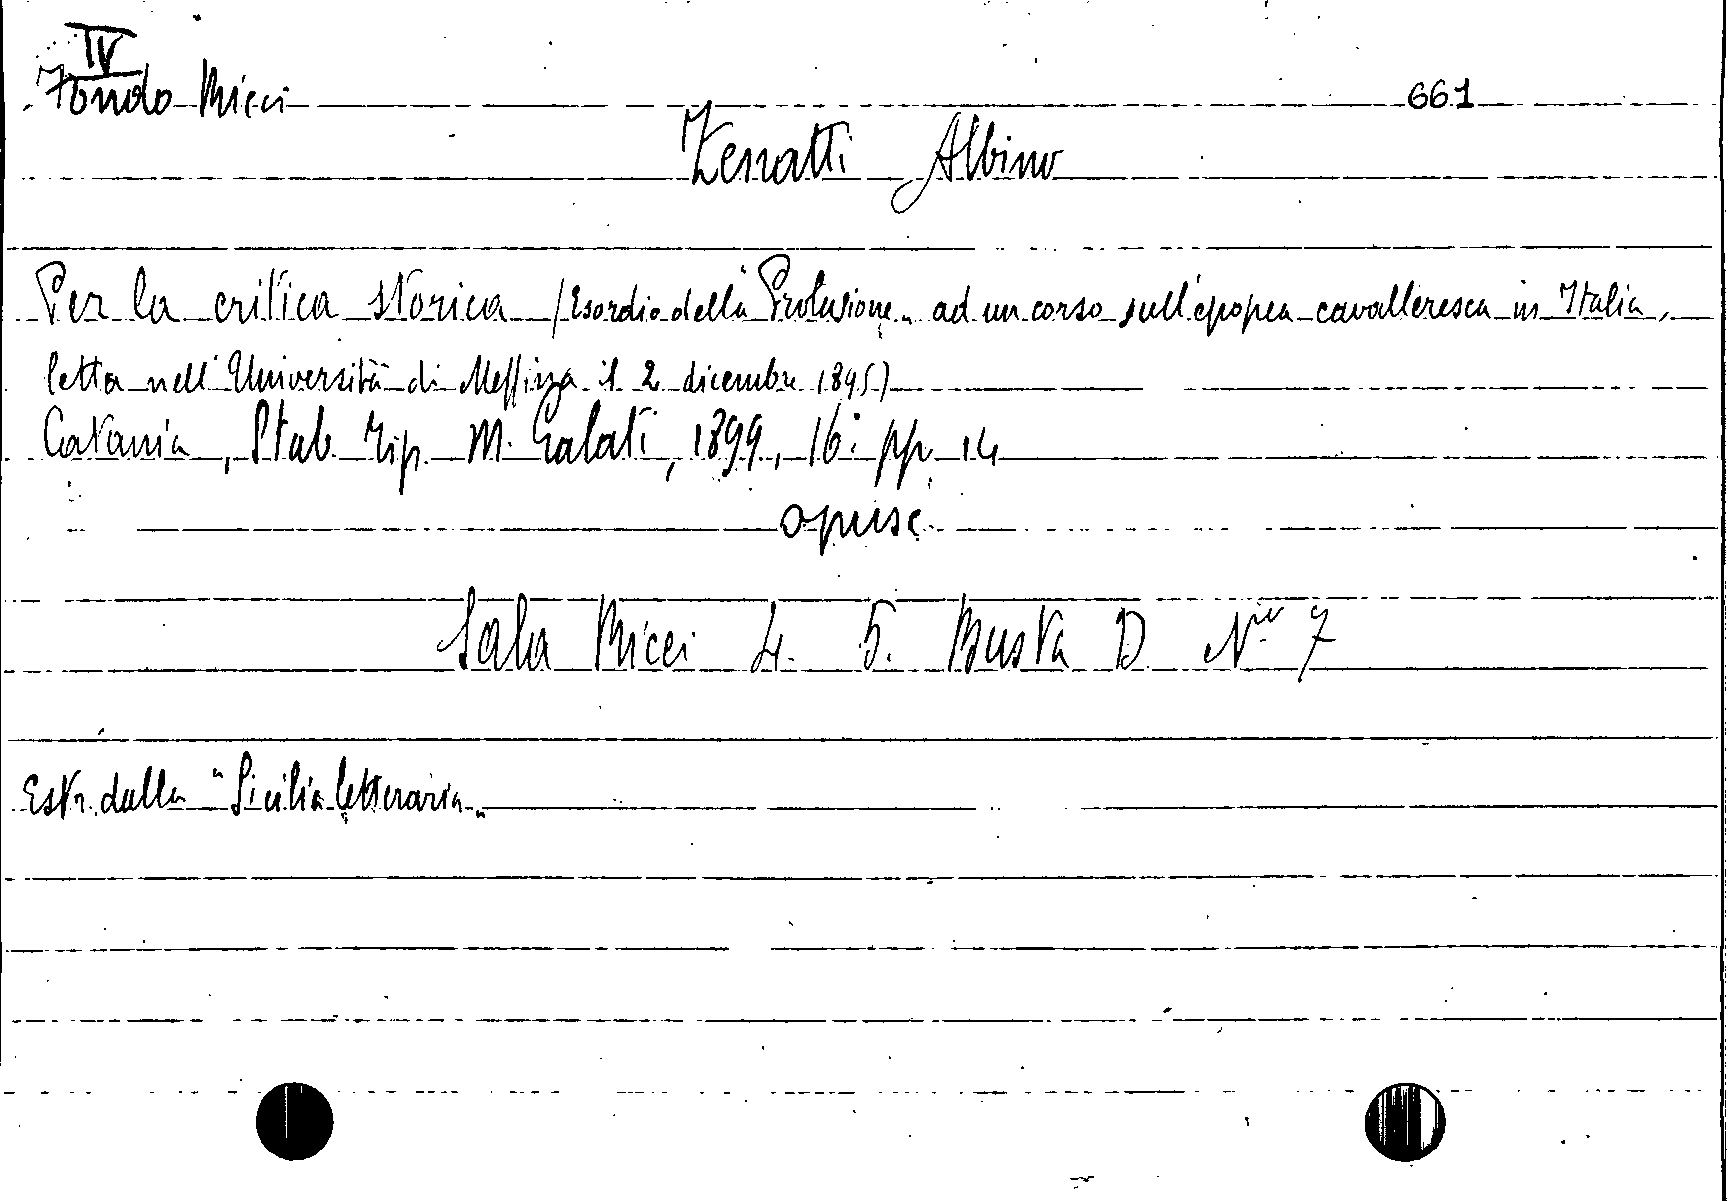 IV
Fondo Ricci 661
Zenatti Albino
Per la critica storica (Esordio della "Prolusione" ad un corso sull'epopea cavalleresca in Italia,
letta nell'Università di Messina il 2 dicembre 1895)
Catania, Stab. Tip. M. Galati, 1899, 16° pp. 14
opusc.
Sala Ricci 4. 5. Busta D Nro 7
Estr. dalla "Sicilia letteraria"